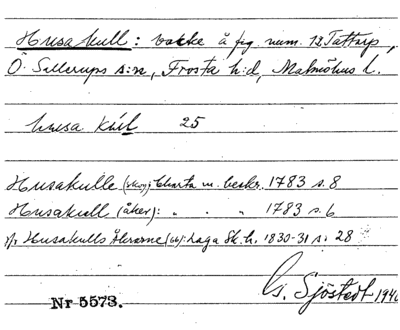 Husakull: backe å äg. num. 12 Tattarp,
Ö. Sallerups s:n, Frosta h:d, Malmöhus l.
husa kúl 25
Husakulle (skog): Charta m. beskr. 1783 s. 8
Husakull (åker): " " " 1783 s. 6
Husakulls Åkrarne (): Laga Sk. h. 1830-31 s. 28
G. Sjöstedt 1940
Nr 5573.